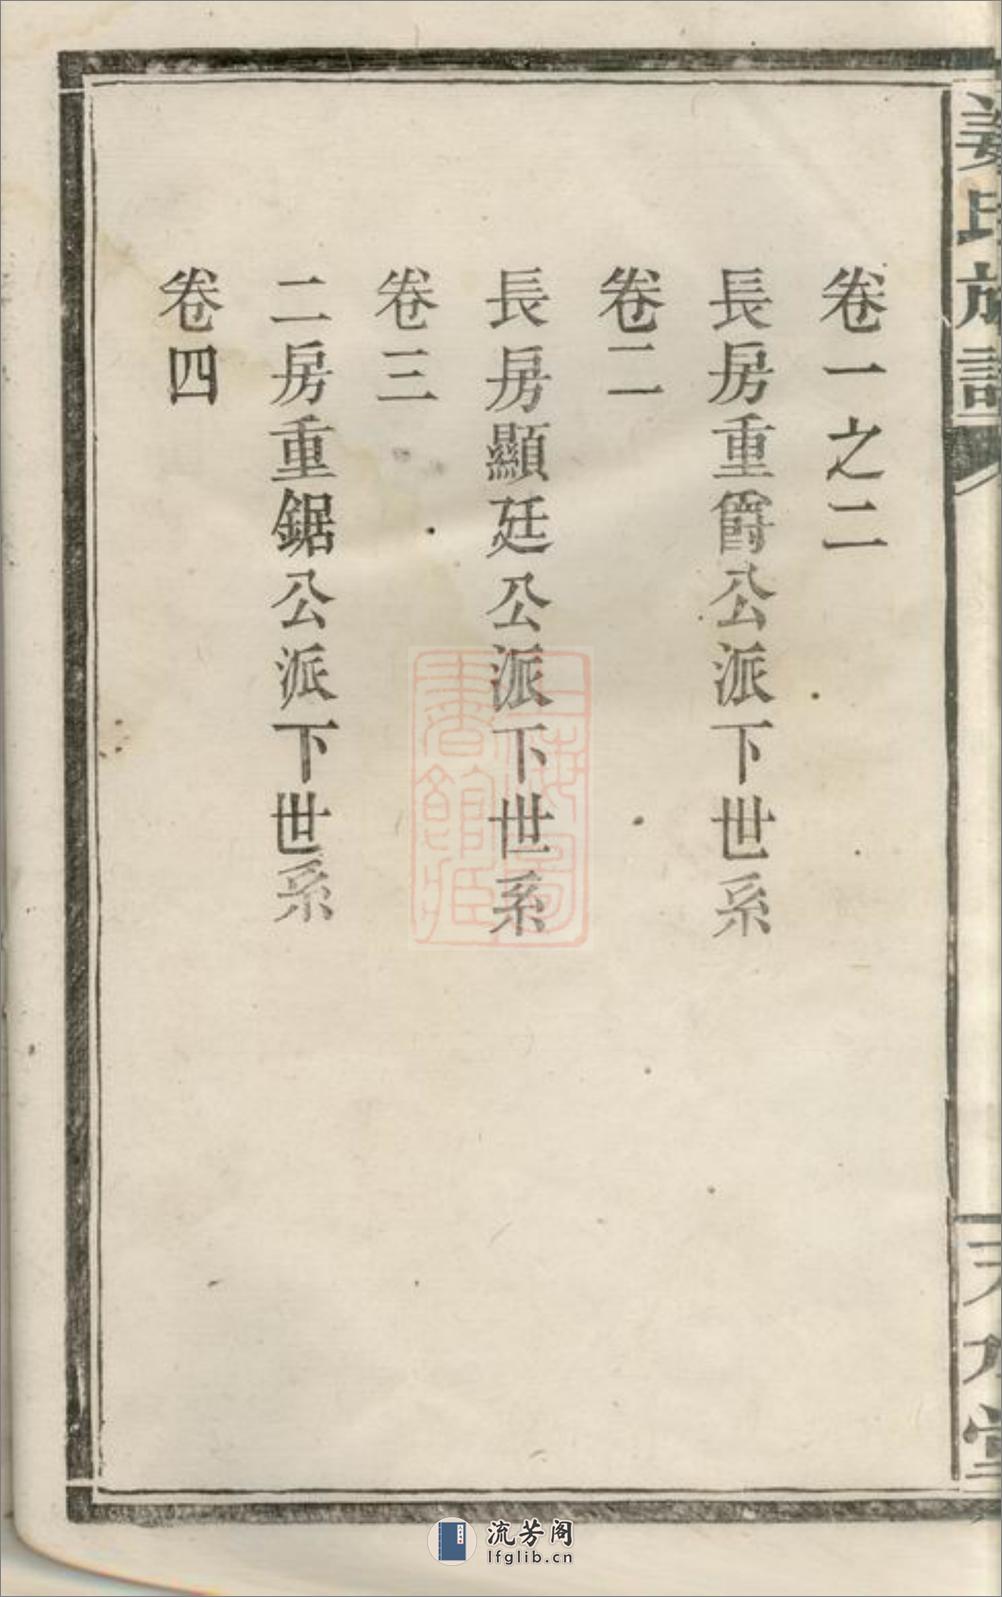 姜氏族譜
卷一之二
長房重爵公派下世系
卷二
長房顯廷公派下世系
卷三
二房重鋸公派下世系
卷四
上海圖書館藏
流芳阁
lfglib.cn